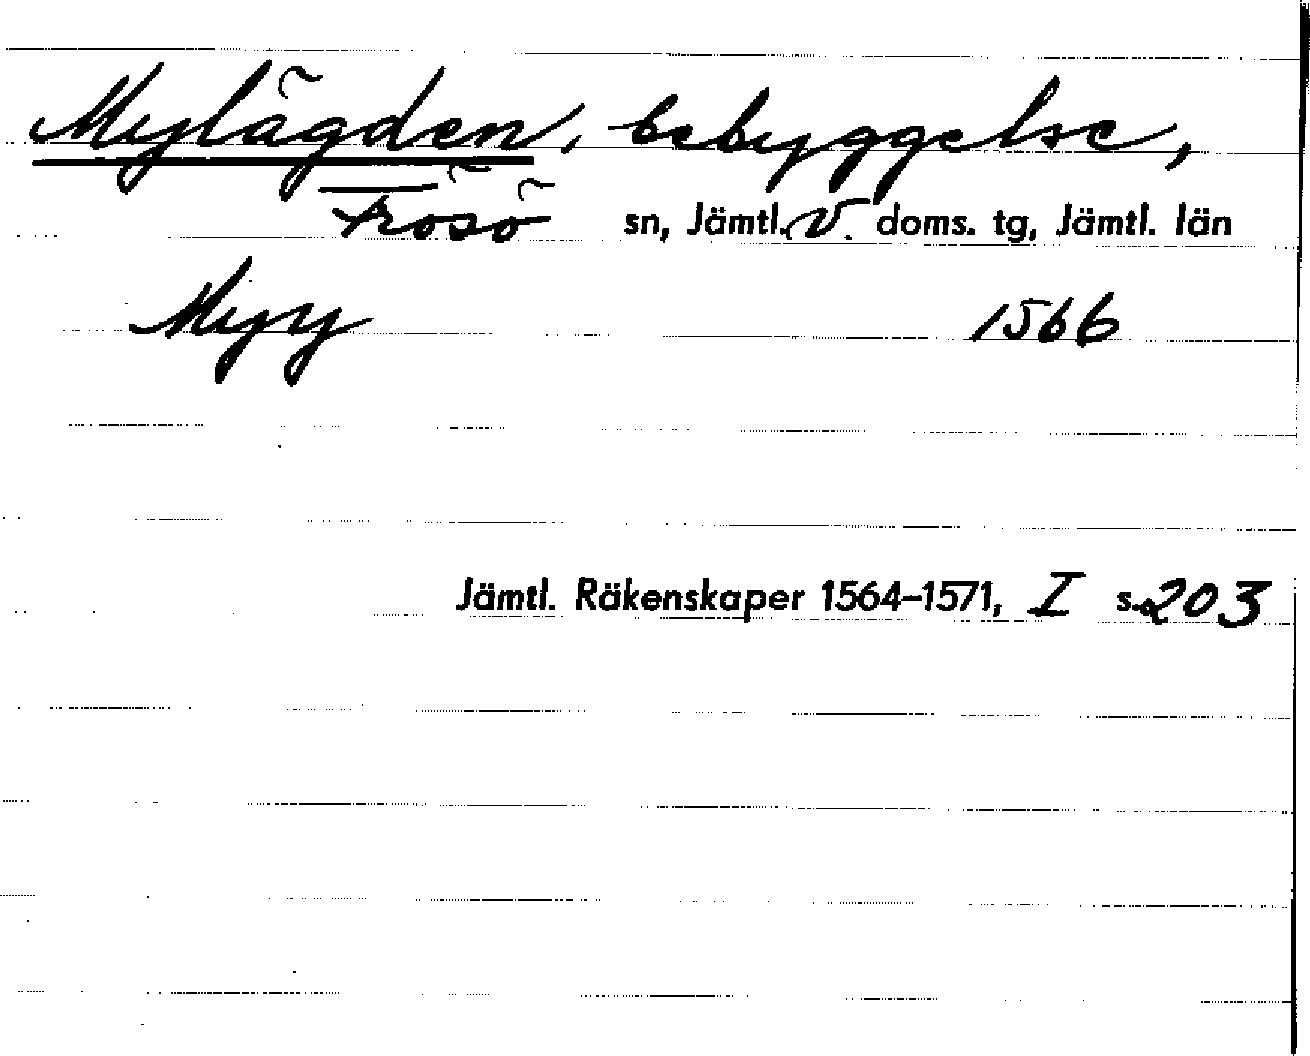 Mylägden, bebyggelse,
Frösö sn, Jämtl. V. doms. tg, Jämtl. län
Myry 1566
Jämtl. Räkenskaper 1564–1571, I s. 203